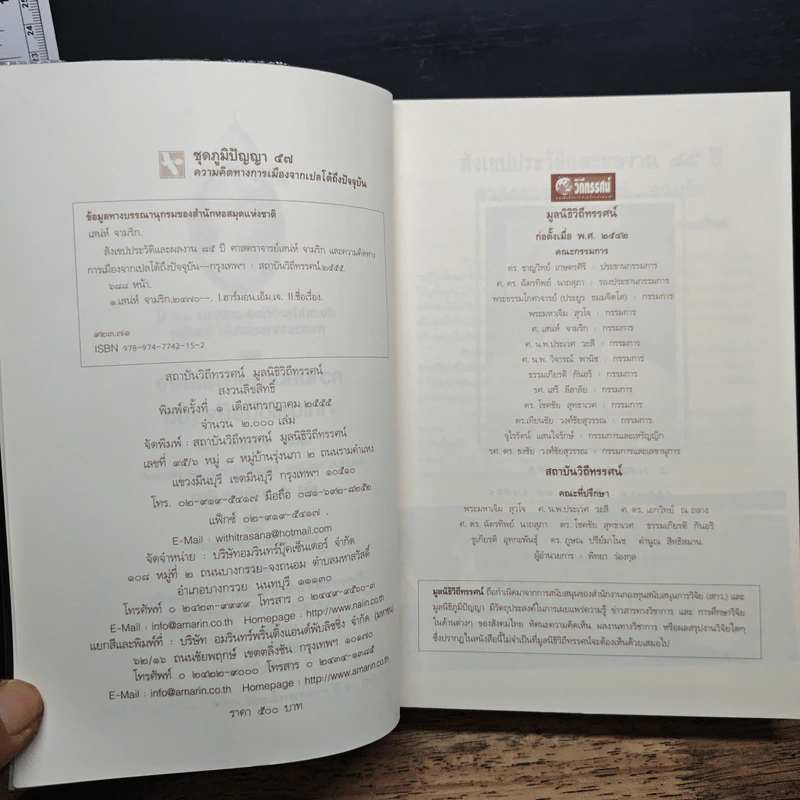 ชุดภูมิปัญญา ๕๗
ความคิดทางการเมืองจากเปลโต้ถึงปัจจุบัน
ข้อมูลทางบรรณานุกรมของสำนักหอสมุดแห่งชาติ
เสน่ห์ จามริก.
สังเขปประวัติและผลงาน ๘๕ ปี ศาสตราจารย์เสน่ห์ จามริก และความคิดทาง
การเมืองจากเปลโต้ถึงปัจจุบัน--กรุงเทพฯ : สถาบันวิถีทรรศน์,๒๕๕๕
๖๘๘ หน้า.
๑.เสน่ห์ จามริก,๒๔๗๐--. I.ฮาร์มอน,เอ็ม.เจ. II.ชื่อเรื่อง.
๙๒๓.๗๑
ISBN 978-974-7742-15-2
สถาบันวิถีทรรศน์ มูลนิธิวิถีทรรศน์
สงวนลิขสิทธิ์
พิมพ์ครั้งที่ ๑ เดือนกรกฎาคม ๒๕๕๕
จำนวน ๒,๐๐๐ เล่ม
จัดพิมพ์ : สถาบันวิถีทรรศน์ มูลนิธิวิถีทรรศน์
เลขที่ ๙๕/๖ หมู่ ๘ หมู่บ้านรุ่งนภา ๒ ถนนรามคำแหง
แขวงมีนบุรี เขตมีนบุรี กรุงเทพฯ ๑๐๕๑๐
โทร. ๐๒-๙๑๙-๕๔๑๗ มือถือ ๐๘๑-๖๙๒-๘๒๕๒
แฟ็กซ์ ๐๒-๙๑๙-๕๔๑๗ ,
E-Mail : withitrasana@hotmail.com
จัดจำหน่าย : บริษัทอมรินทร์บุ๊คเซ็นเตอร์ จำกัด
๑๐๘ หมู่ที่ ๒ ถนนบางกรวย-จงถนอม ตำบลมหาสวัสดิ์
อำเภอบางกรวย นนทบุรี ๑๑๑๓๐
โทรศัพท์ ๐ ๒๔๒๓-๙๙๙๙ โทรสาร ๐ ๒๔๔๙-๙๕๐๐-๓
E-Mail : info@amarin.co.th Homepage : http://www.naiin.co.th
แยกสีและพิมพ์ที่ : บริษัท อมรินทร์พริ้นติ้งแอนด์พับลิชชิ่ง จำกัด (มหาชน)
๖๒/๑๖ ถนนชัยพฤกษ์ เขตตลิ่งชัน กรุงเทพฯ ๑๐๑๗๐
โทรศัพท์ ๐ ๒๔๒๒-๙๐๐๐ โทรสาร ๐ ๒๔๓๔-๑๓๘๕
E-Mail : info@amarin.co.th Homepage : http://www.amarin.co.th
ราคา ๕๐๐ บาท
วิถีทรรศน์
มูลนิธิวิถีทรรศน์
ก่อตั้งเมื่อ พ.ศ. ๒๕๔๒
คณะกรรมการ
ดร. ชาญวิทย์ เกษตรศิริ : ประธานกรรมการ
ศ. ดร. ฉัตรทิพย์ นาถสุภา : รองประธานกรรมการ
พระธรรมโกศาจารย์ (ประยูร ธมมจิตโต) : กรรมการ
พระมหาเจิม สุวโจ : กรรมการ
ศ. เสน่ห์ จามริก : กรรมการ
ศ. น.พ.ประเวศ วะสี : กรรมการ
ศ. น.พ. วิจารณ์ พานิช : กรรมการ
ธรรมเกียรติ กันอริ : กรรมการ
รศ. เสรี ลีลาลัย : กรรมการ
ดร. โชคชัย สุทธาเวศ : กรรมการ
ดร.เทียนชัย วงศ์ชัยสุวรรณ : กรรมการ
จุไรรัตน์ แสนใจรักษ์ : กรรมการและเหรัญญิก
รศ. ดร. ธงชัย วงศ์ชัยสุวรรณ : กรรมการและเลขานุการ
สถาบันวิถีทรรศน์
คณะที่ปรึกษา
พระมหาเจิม สุวโจ ศ. น.พ.ประเวศ วะสี ศ. ดร. เอกวิทย์ ณ ถลาง
ศ. ดร. ฉัตรทิพย์ นาถสุภา ดร. โชคชัย สุทธาเวศ ธรรมเกียรติ กันอริ
ชูเกียรติ อุทกะพันธุ์ ดร. ภูษณ ปรีย์มาโนช คำนูณ สิทธิสมาน
ผู้อำนวยการ : พิทยา ว่องกุล
มูลนิธิวิถีทรรศน์ ถือกำเนิดมาจากการสนับสนุนของสำนักงานกองทุนสนับสนุนการวิจัย (สกว.) และ
มูลนิธิภูมิปัญญา มีวัตถุประสงค์ในการเผยแพร่ความรู้ ข่าวสารทางวิชาการ และ การศึกษาวิจัย
ในด้านต่างๆ ของสังคมไทย ทัศนะความคิดเห็น ผลงานทางวิชาการ หรือผลสรุปงานวิจัยใดๆ
ซึ่งปรากฏในหนังสือนี้ไม่จำเป็นที่มูลนิธิวิถีทรรศน์จะต้องเห็นด้วยเสมอไป